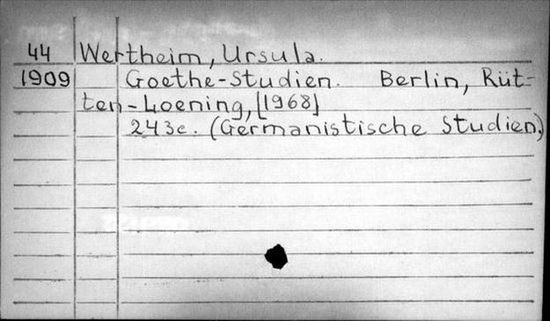 44 Wertheim, Ursula.
1909 Goethe-Studien. Berlin, Rüt-
ten-Loening, [1968]
243c. (Germanistische Studien)